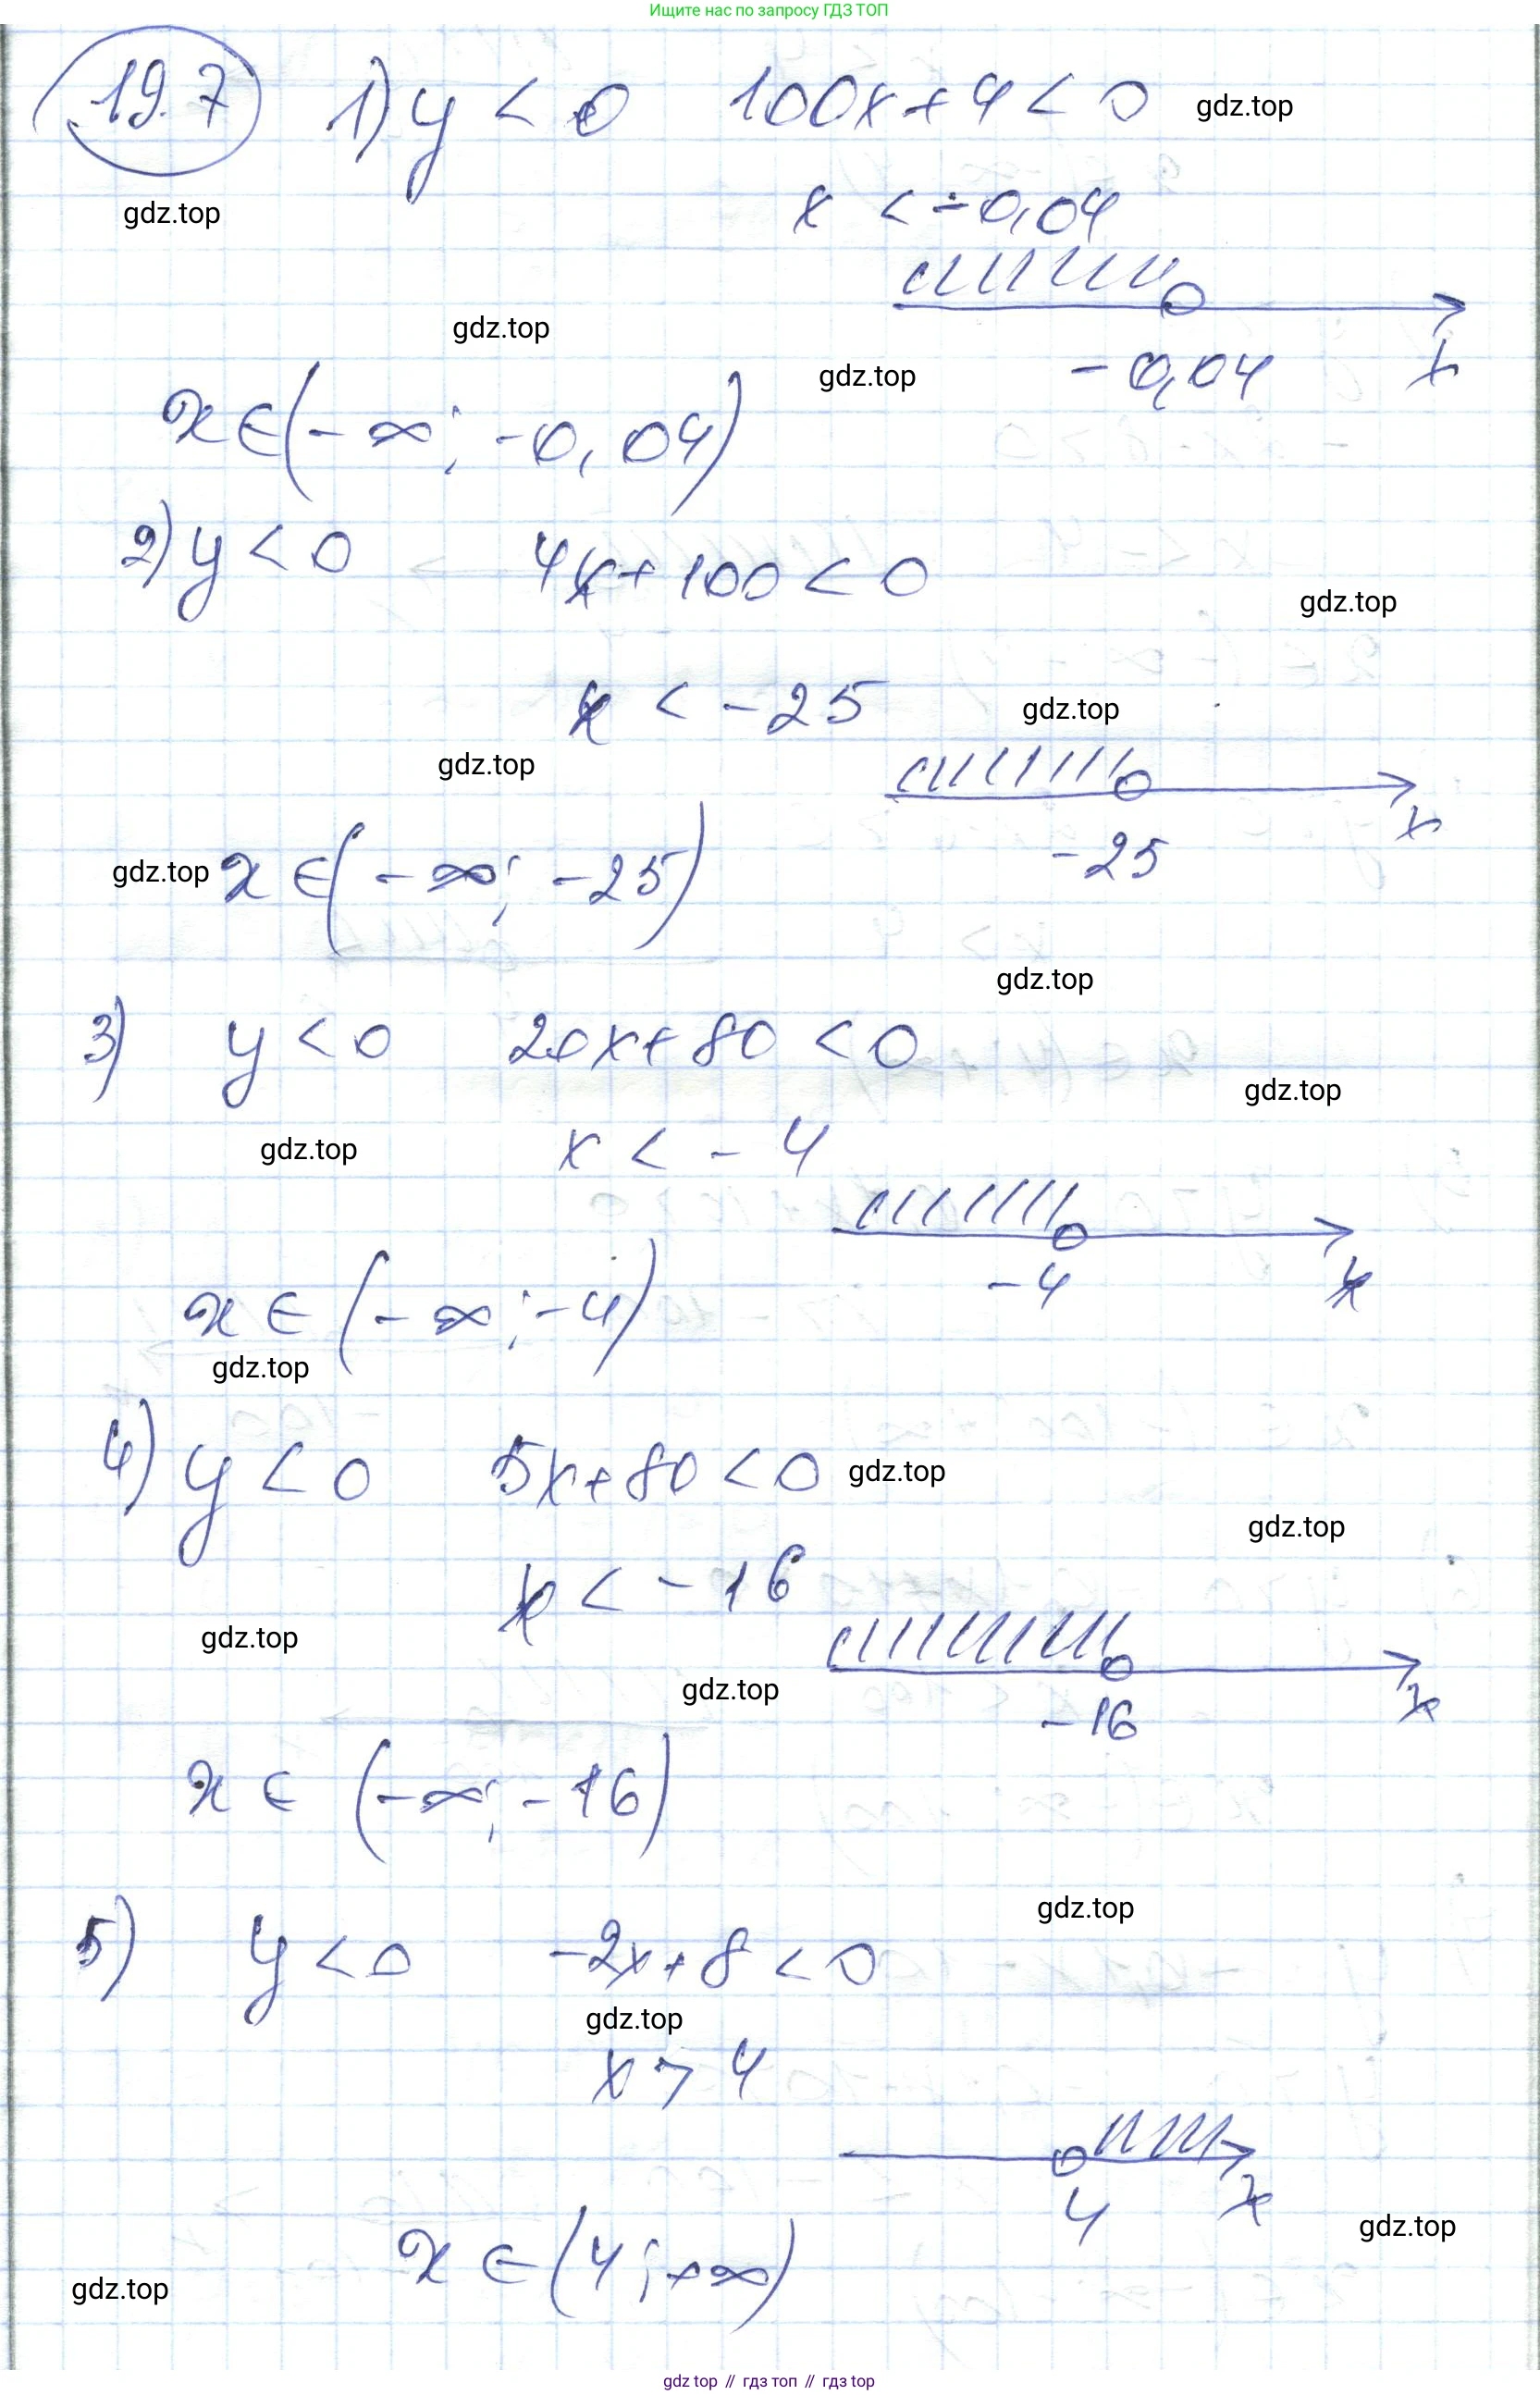 Ищите нас по запросу ГДЗ ТОП
19.7 1) y < 0 100x + 4 < 0 gdz.top
gdz.top x < -0,04
gdz.top
-0,04 x
gdz.top
x ∈ (-∞; -0,04)
2) y < 0 4x + 100 < 0
gdz.top
x < -25 gdz.top
gdz.top
-25 x
gdz.top x ∈ (-∞; -25)
gdz.top
3) y < 0 20x + 80 < 0
gdz.top
gdz.top x < -4
-4 x
x ∈ (-∞; -4)
gdz.top
4) y < 0 5x + 80 < 0 gdz.top
gdz.top
x < -16
gdz.top
gdz.top
-16 x
x ∈ (-∞; -16)
gdz.top
5) y < 0 -2x + 8 < 0
gdz.top
x > 4
4 x
gdz.top
x ∈ (4; +∞)
gdz.top
gdz top // гдз топ // гдз top